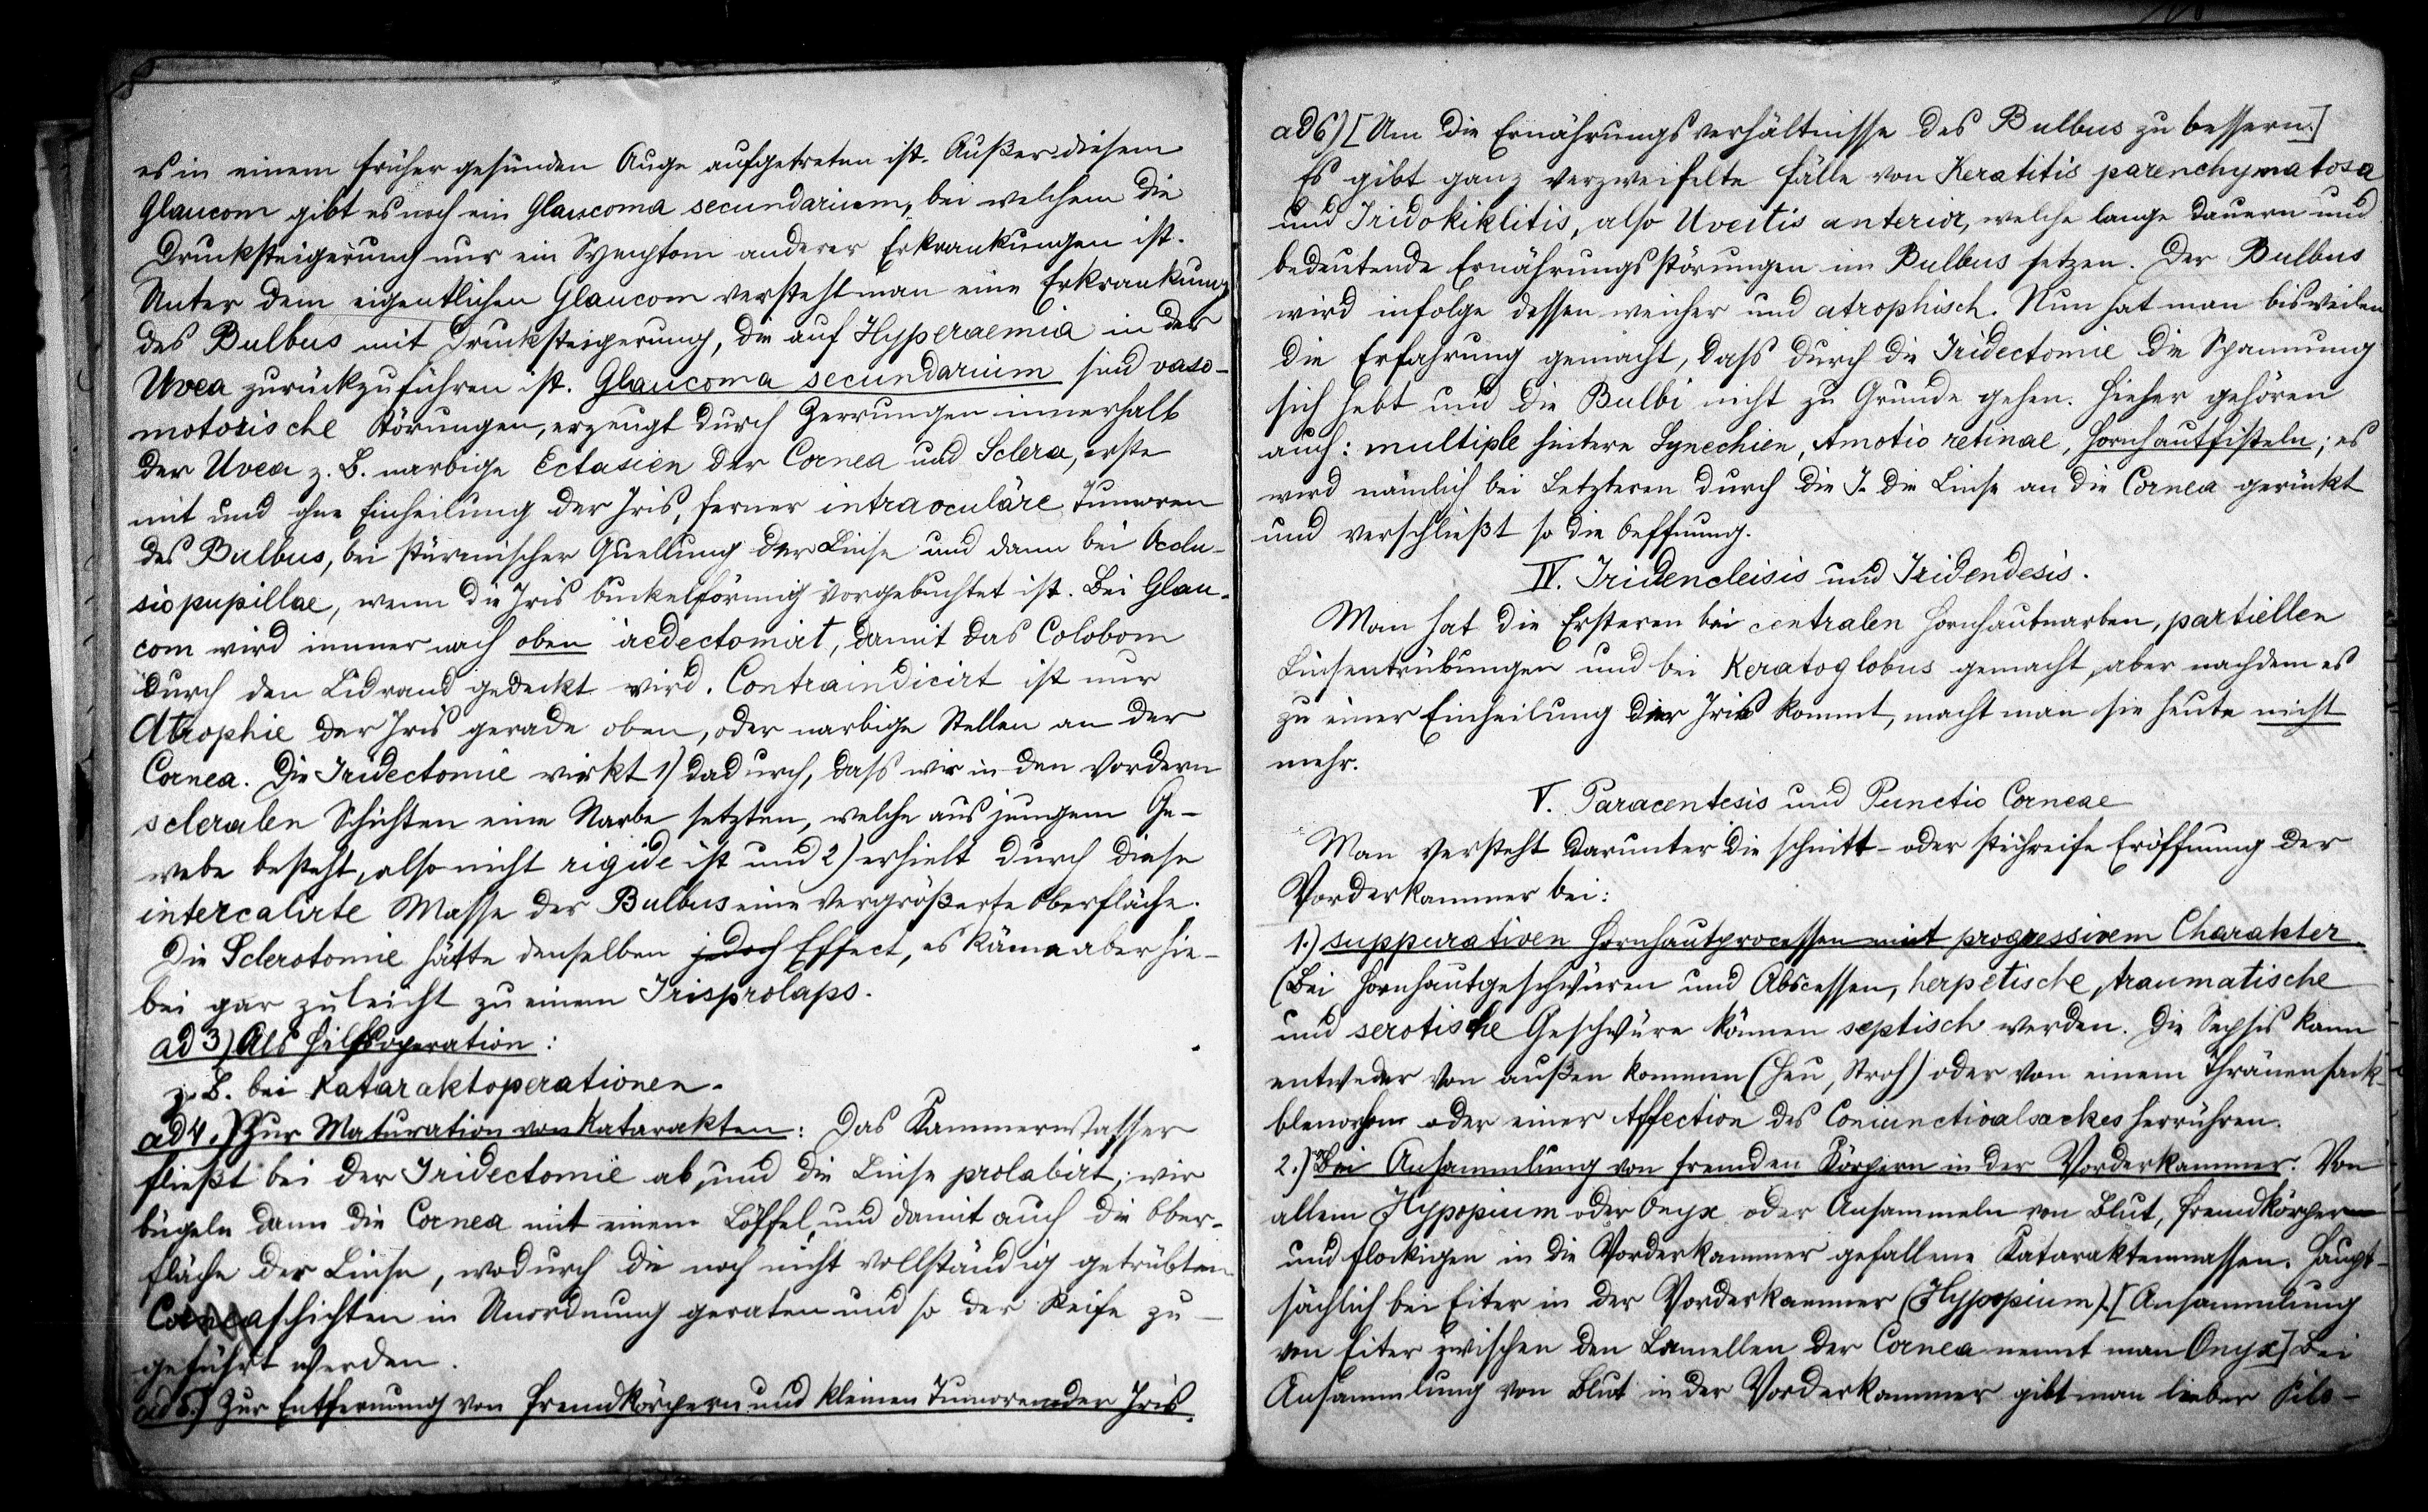 es in einem früher gesunden Auge aufgetreten ist. Außer diesem
Glaucom gibt es noch ein Glaucoma secundarium, bei welchem die
Drucksteigerung nur ein Symptom anderer Erkrankungen ist.
Unter dem eigentlichen Glaucom versteht man eine Erkrankung
des Bulbus mit Drucksteigerung, die auf Hyperaemia in der
Uvea zurückzuführen ist. Glaucoma secundarium sind vaso-
motorische Störungen, erzeugt durch Zerrungen innerhalb
der Uvea z. B. narbige Ectasien der Cornea und Sclera, erste
mit und ohne Einheilung der Iris, ferner intraoculäre Tumoren
des Bulbus, bei stürmischer Quellung der Linse und dann bei Occlu-
sio pupillae, wenn die Iris buckelförmig vorgebuchtet ist. Bei Glau-
com wird immer nach oben iredectomirt, damit das Colobom
durch den Lidrand gedeckt wird. Contraindicirt ist nur
Atrophie der Iris gerade oben, oder narbige Stellen an der
Cornea. Die Iridectomie wirkt 1) dadurch, dass wir in den vordern
scleralen Schichten eine Narbe setzten, welche aus jungem Ge-
webe besteht, also nicht rigide ist und 2) erhielt durch diese
intercalirte Masse der Bulbus eine vergrößerte Oberfläche.
Die Sclerotomie hätte denselben jedoch Effect, es käme aber hie-
bei gar zu leicht zu einem Irisprolaps.
ad 3) Als Hilfsoperation:
z. B. bei Kataraktoperationen.
ad 4.) Zur Maturation von Katarakten: Das Kammerwasser
fließt bei der Iridectomie ab, und die Linse prolabirt; wir
bügeln dann die Cornea mit einem Löffel, und damit auch die Ober-
fläche der Linse, wodurch die noch nicht vollständig getrübten
Corneaschichten in Unordnung geraten und so der Reife zu-
geführt werden.
ad 5.) Zur Entfernung von Fremdkörpern und kleinen Tumoren der Iris.
ad 6) [Um die Ernährungsverhältnisse des Bulbus zu bessern.]
Es gibt ganz verzweifelte Fälle von Keratitis parenchymatosa
und Iridokiklitis, also Uveitis anterior, welche lange dauern und
bedeutende Ernährungsstörungen im Bulbus setzen. Der Bulbus
wird infolge dessen weicher und atrophisch. Nun hat man bisweilen
die Erfahrung gemacht, dass durch die Iridectomie die Spannung
sich hebt und die Bulbi nicht zu Grunde gehen. Hieher gehören
auch: multiple hintere Synechien, Amotio retinae, Hornhautfisteln; es
wird nämlich bei Letzteren durch die I. die Linse an die Cornea gerückt
und verschließt so die Oeffnung.
IV. Iridencleisis und Iridendesis.
Man hat die Ersteren bei centralen Hornhautnarben, partiellen
Linsentrübungen und bei Keratoglobus gemacht, aber nachdem es
zu einer Einheilung der Iris kommt, macht man sie heute nicht
mehr.
V. Paracentesis und Punctio Corneae
Man versteht darunter die schnitt- oder stichweise Eröffnung der
Vorderkammer bei:
1.) suppurativen Hornhautprocessen mit progressivem Charakter.
(Bei Hornhautgeschwüren und Abscessen, herpetische, traumatische
und serotische Geschwüre können septisch werden. Die Sepsis kann
entweder von außen kommen (Heu, Stroh) oder von einem Thränensack-
blenorhoe oder einer Affection des Coniunctioalsackes herrühren.
2.) Bei Ansammlung von fremden Körpern in der Vorderkammer. Vor
allem Hypopium oder Onyx oder Ansammeln von Blut, Fremdkörpern
und flockigen in die Vorderkammer gefallene Kataraktenmassen. Haupt-
sächlich bei Eiter in der Vorderkammer (Hypopium). [Ansammlung
von Eiter zwischen den Lamellen der Cornea nennt man Onyx] Bei
Ansammlung von Blut in der Vorderkammer gibt man lieber Pilo-